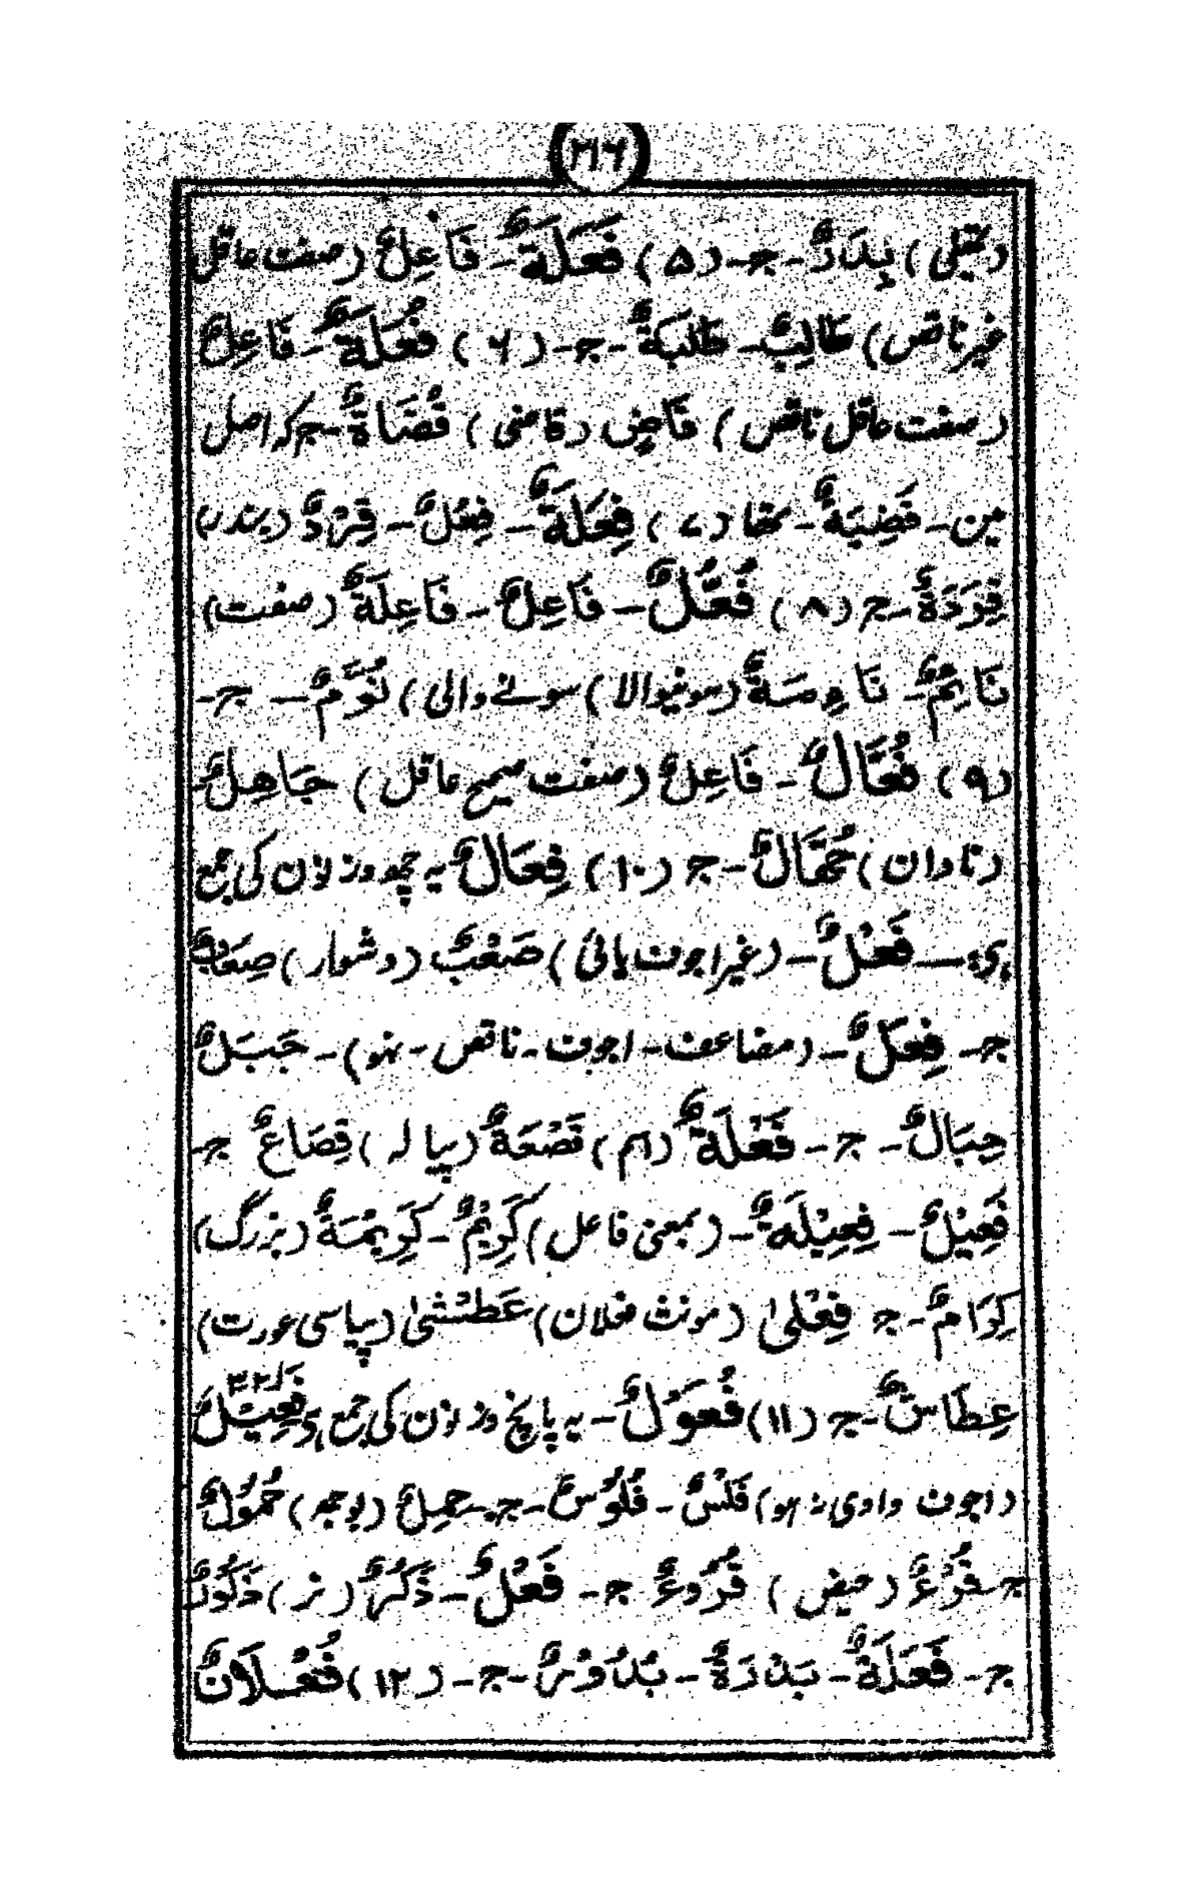 ۲۱۶
(تھیلی) بِدَرٌ - جـ - (۵) فَعَلَةٌ - فَاعِلٌ (صفت عاقل
غیر ناقص) طَالِبٌ - طَلَبَةٌ - جـ - (۶) فُعَلَةٌ - فَاعِلٌ
(صفت عاقل ناقص) قَاضِی (قاضی) قُضَاةٌ - جـ کہ اصل
میں - قَضِیَةٌ - تھا (۷) فِعَلَةٌ - فِعْلٌ - قِرْدٌ (بندر)
قِرَدَةٌ - جـ (۸) فُعَّلٌ - فَاعِلٌ - فَاعِلَةٌ (صفت)
نَائِمٌ - نَائِمَةٌ (سونیوالا) سونے والی) نُوَّمٌ - جـ -
(۹) فُعَّالٌ - فَاعِلٌ (صفت صحیح عاقل) جَاهِلٌ
(نادان) جُهَّالٌ - جـ (۱۰) فِعَالٌ - یہ چھ وزنوں کی جمع
ہے - فَعْلٌ - (غیر اجوف یائی) صَعْبٌ (دشوار) صِعَابٌ
جـ - فِعَلٌ - (مضاعف - اجوف - ناقص - نہو) - جَبَلٌ
جِبَالٌ - جـ - فَعْلَةٌ (اسم) قَصْعَةٌ (پیالہ) قِصَاعٌ جـ -
فَعِیْلٌ - فِعِیْلَةٌ - (بمعنی فاعل) کَرِیْمٌ - کَرِیْمَةٌ (بزرگ)
کِرَامٌ - جـ فِعْلیٰ (مونث فعلان) عَطْشیٰ (پیاسی عورت)
عِطَاشٌ - جـ (۱۱) فُعُوْلٌ - یہ پانچ وزنوں کی جمع ہے فَعِیْلٌ
(اجوف وادی نہ ہو) فَلْسٌ - فُلُوْسٌ - جـ - حِمِلٌ (بوجھ) حُمُوْلٌ
جـ - قُرْءٌ (حیض) قُرُوْءٌ جـ - فَعْلٌ - ذَکَرٌ (نر) ذَکُوْرٌ
جـ - فَعَلَةٌ - بَدْرَةٌ - بُدُوْرٌ - جـ - (۱۲) فُعْلَانٌ